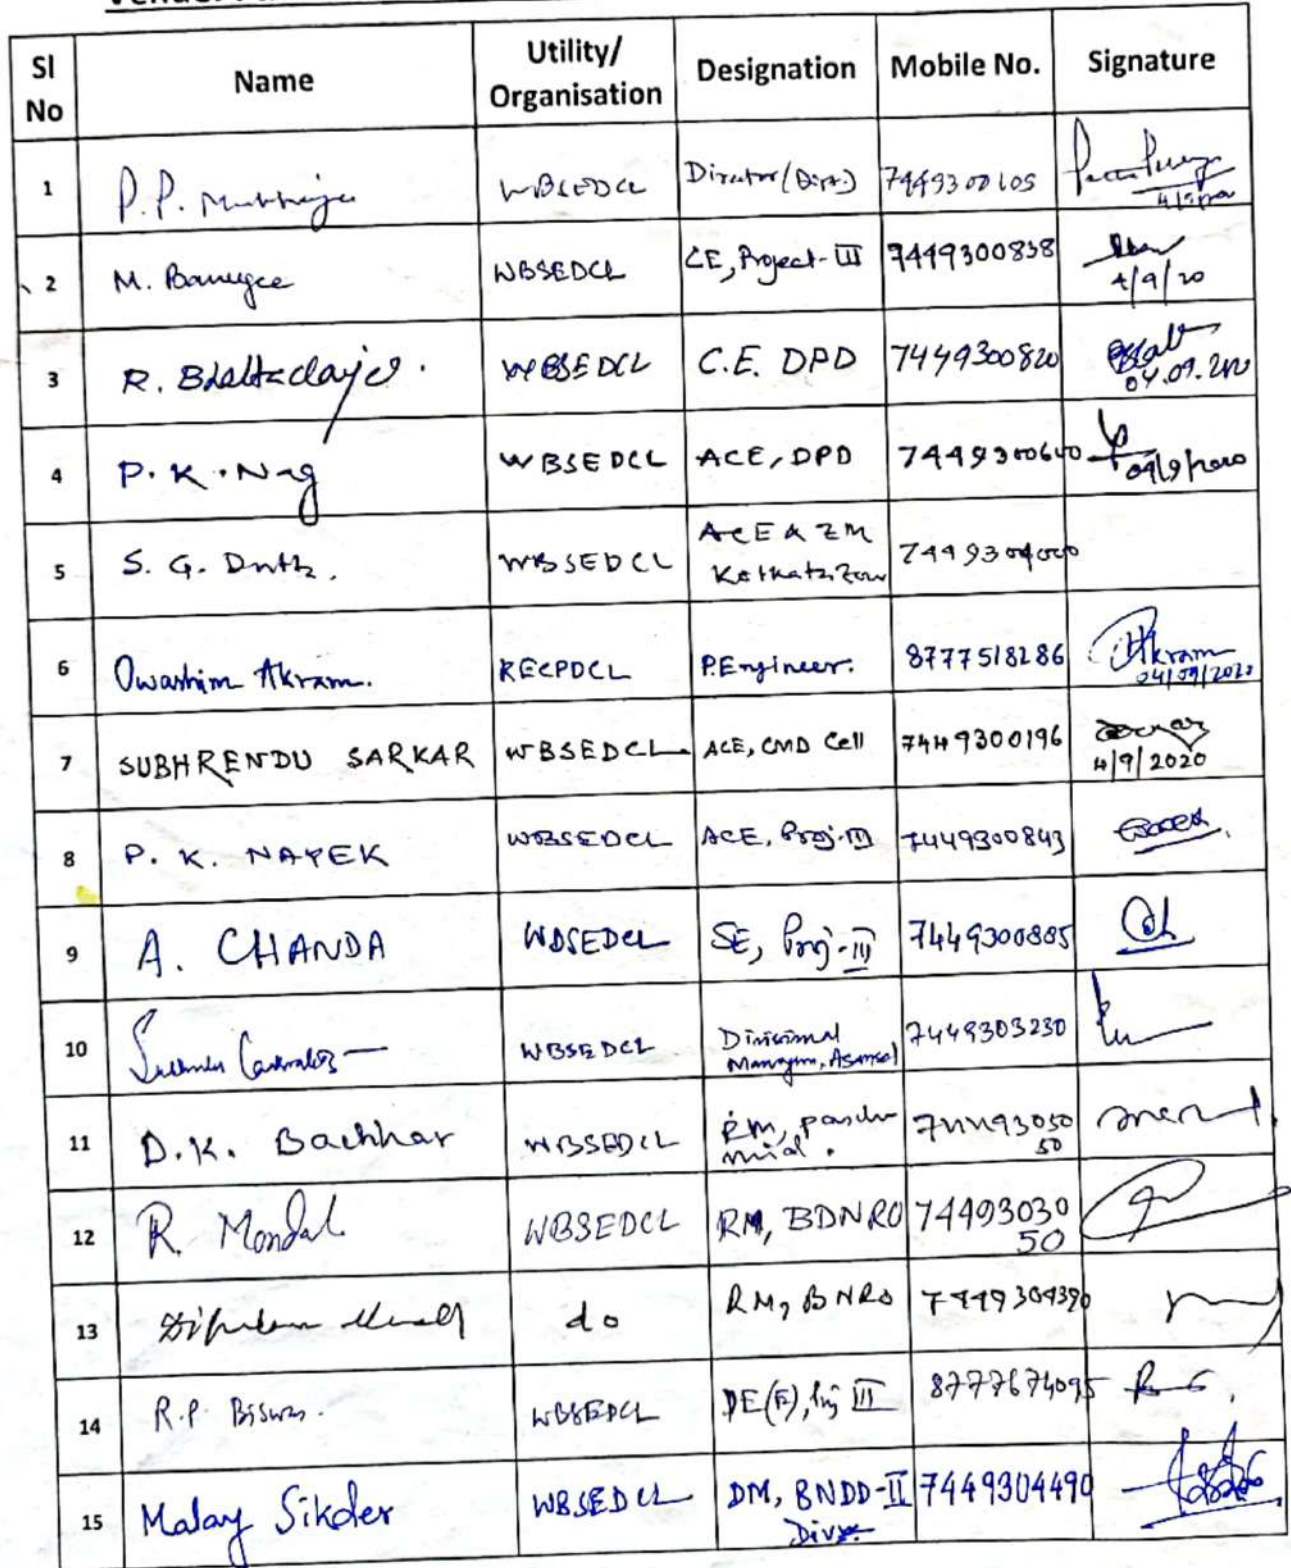 Sl No | Name | Utility/ Organisation | Designation | Mobile No. | Signature
1 | P.P. Mukherjee | WBSEDCL | Director (Dist.) | 7449300105
2 | M. Banerjee | WBSEDCL | CE, Project-III | 7449300838 | 4/9/20
3 | R. Bhattacharjee. | WBSEDCL | C.E. DPD | 7449300820 | 04.09.2020
4 | P.K. Nag | WBSEDCL | ACE, DPD | 7449300640 | 04/9/2020
5 | S. G. Dutta. | WBSEDCL | ACE & ZM Kolkata Zone
6 | Owashim Akram. | RECPDCL | P.Engineer. | 8777518286 | Akram 04/09/2020
7 | SUBHRENDU SARKAR | WBSEDCL | ACE, CMD Cell | 7449300196 | 4/9/2020
8 | P. K. NAYEK | WBSEDCL | ACE, Proj-III | 7449300843
9 | A. CHANDA | WBSEDCL | SE, Proj-III | 7449300885
10 | WBSEDCL | Divisional Manager, Asansol | 7449303230
11 | D.K. Bachhar | WBSEDCL | RM, | 7449305050
12 | R. Mondal | WBSEDCL | RM, BDNRO | 7449303050
13 | do | RM, BNRO | 7449304390
14 | R.P. Biswas. | WBSEDCL | DE(E), Proj III | 8777674095
15 | Malay Sikder | WBSEDCL | DM, BNDD-II Divn. | 7449304490